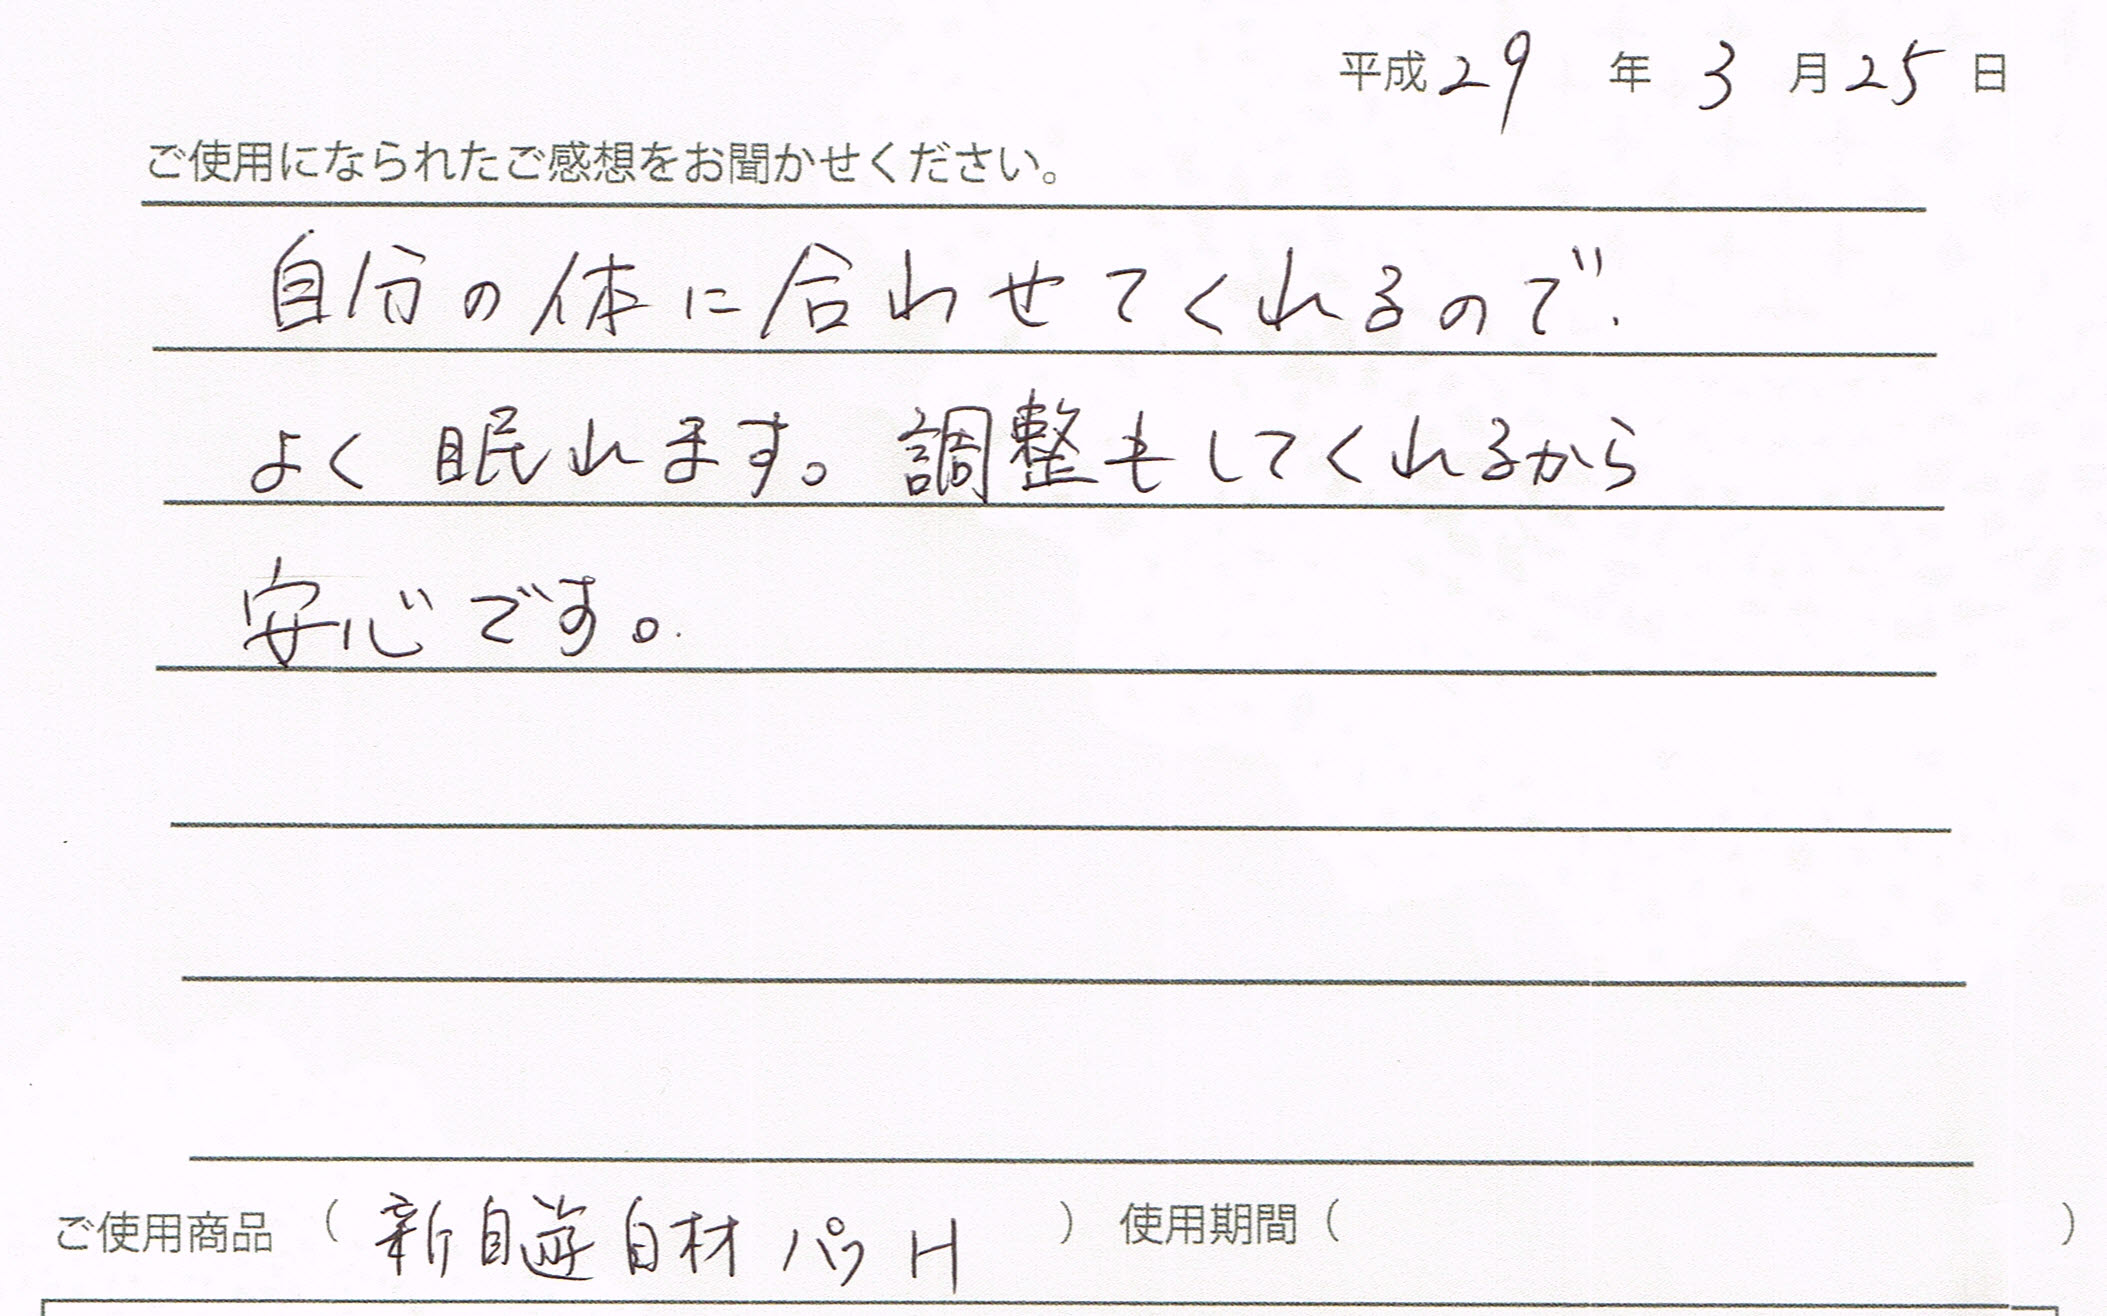 平成29年3月25日
ご使用になられたご感想をお聞かせください。
自分の体に合わせてくれるので、
よく眠れます。調整もしてくれるから
安心です。
ご使用商品（新自遊自材パッH）使用期間（　）